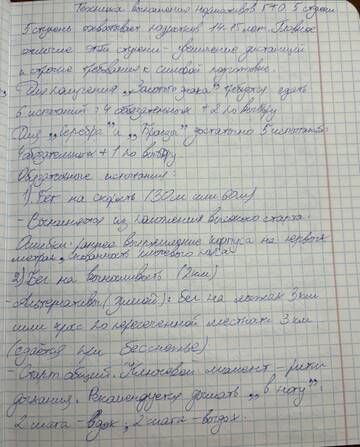 Техника выполнения нормативов ГТО. 5 ступени
5 ступень охватывает подростков 14-15 лет. Главное
отличие этой ступени - увеличение дистанций
и строгие требования к силовой подготовке.
Для получения „Золотого знака" требуется сдать
6 испытаний: 4 обязательных + 2 по выбору
Для „Серебра" и „Бронзы" достаточно 5 испытаний:
4 обязательных + 1 по выбору
Обязательные испытания:
1) Бег на скорость (30м или 60м)
- Выполняется из положения высокого старта.
Ошибки: раннее выпрямление корпуса на первых
метрах, скованность плечевого пояса
2) Бег на выносливость (2км)
- Альтернатива (зимой): бег на лыжах 3км
или кросс по пересеченной местности 3км
(сдаётся при бесснежье)
- Старт общий. Ключевой момент - ритм
дыхания. Рекомендуется дышать „в ногу":
2 шага - вдох, 2 шага - выдох.